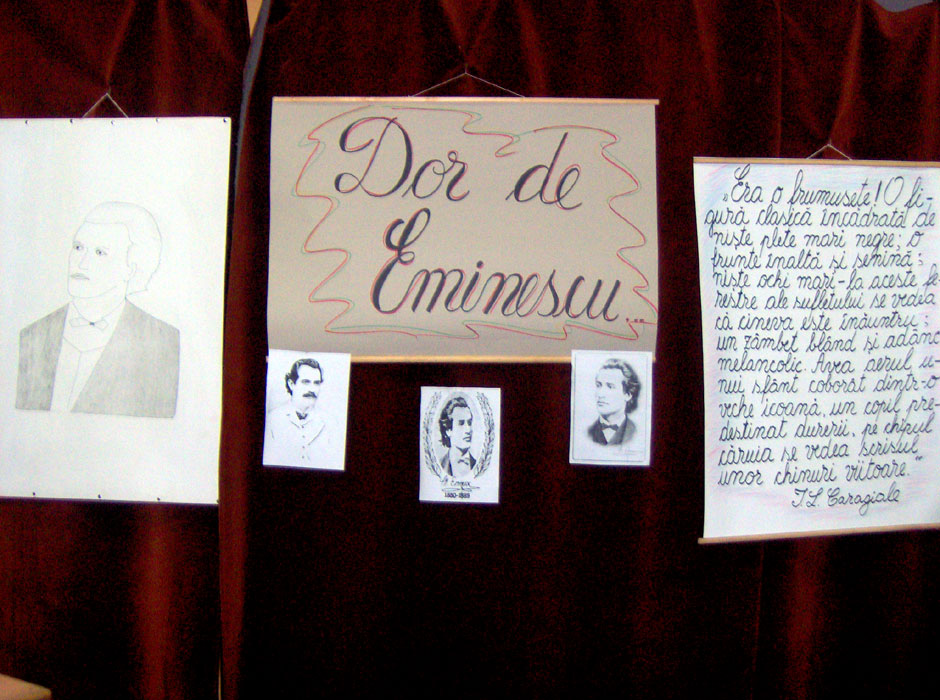 Dor de
Eminescu...
1850-1889
„Era o frumusețe! O fi-
gură clasică încadrată de
niște plete mari negre; o
frunte înaltă și senină;
niște ochi mari-la aceste fe-
restre ale sufletului se vedea
că cineva este înăuntru;
un zâmbet blând și adânc
melancolic. Avea aerul u-
nui sfânt coborât dintr-o
veche icoană, un copil pre-
destinat durerii, pe chipul
căruia se vedea scrisul
unor chinuri viitoare."
I.L. Caragiale